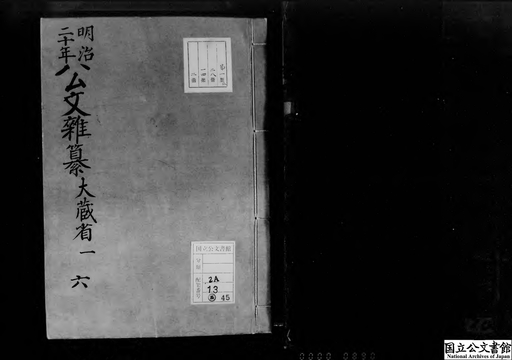 明治
二十年
公文雑纂 大蔵省 一
六
国立公文書館
2A
13
45
国立公文書館
National Archives of Japan